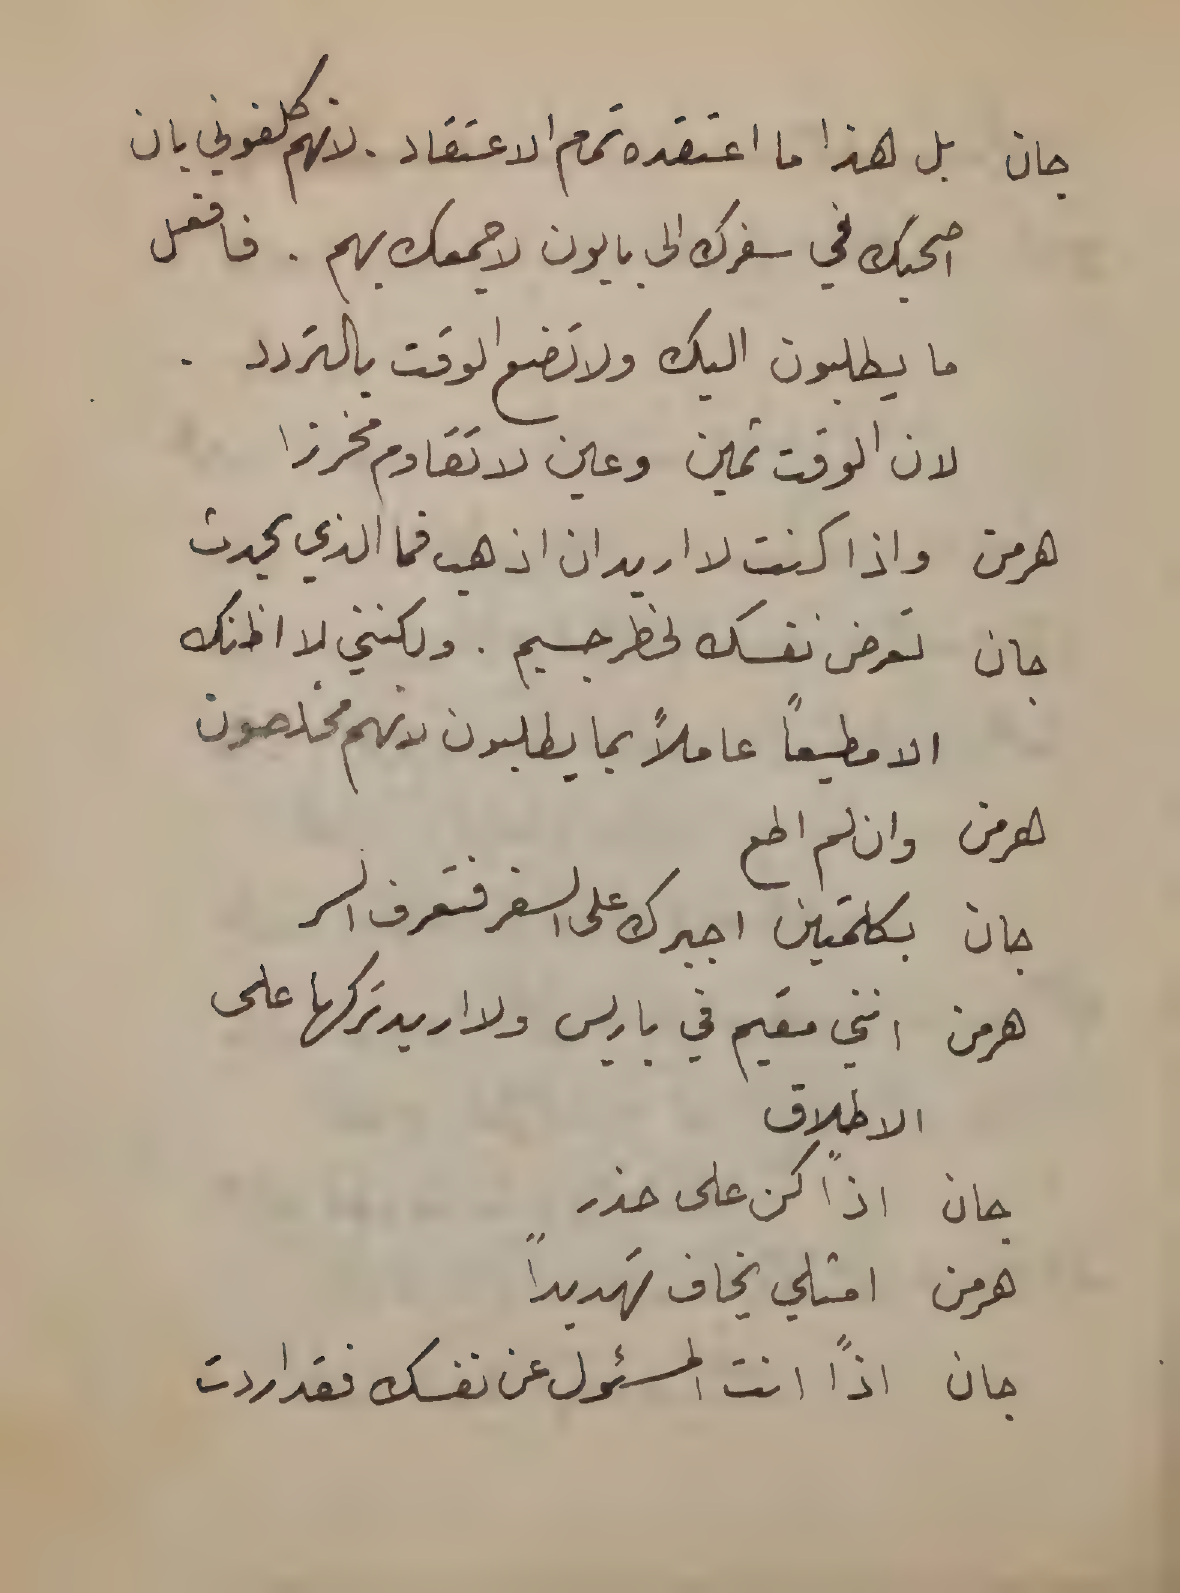 جان بل هذا ما اعتقده تمام الاعتقاد . لانهم كلفوني بان
اصحبك في سفرك الى بايون لاجمعك بهم . فافعل
ما يطلبون اليك ولا تضع الوقت بالتردد .
لان الوقت ثمين وعين لا تقاوم مخرزا
هرمن واذا كنت لا اريد ان اذهب فما الذي يحدث
جان تعرض نفسك لخطر جسيم . ولكنني لا اظنك
الا مطيعاً عاملاً بما يطلبون لانهم مخلصون
هرمن وان لم اطع
جان بكلمتين اجبرك على السفر فتعرف السر
هرمن انني مقيم في باريس ولا اريد تركها على
الاطلاق
جان اذاً كن على حذر
هرمن امثلي يخاف تهديداً
جان اذاً انت المسئول عن نفسك فقد اردت